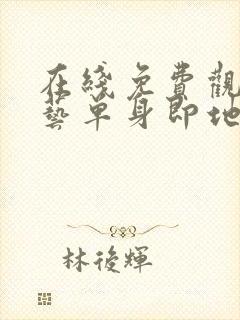 在綫免費觀
藝單身即地
林後輝